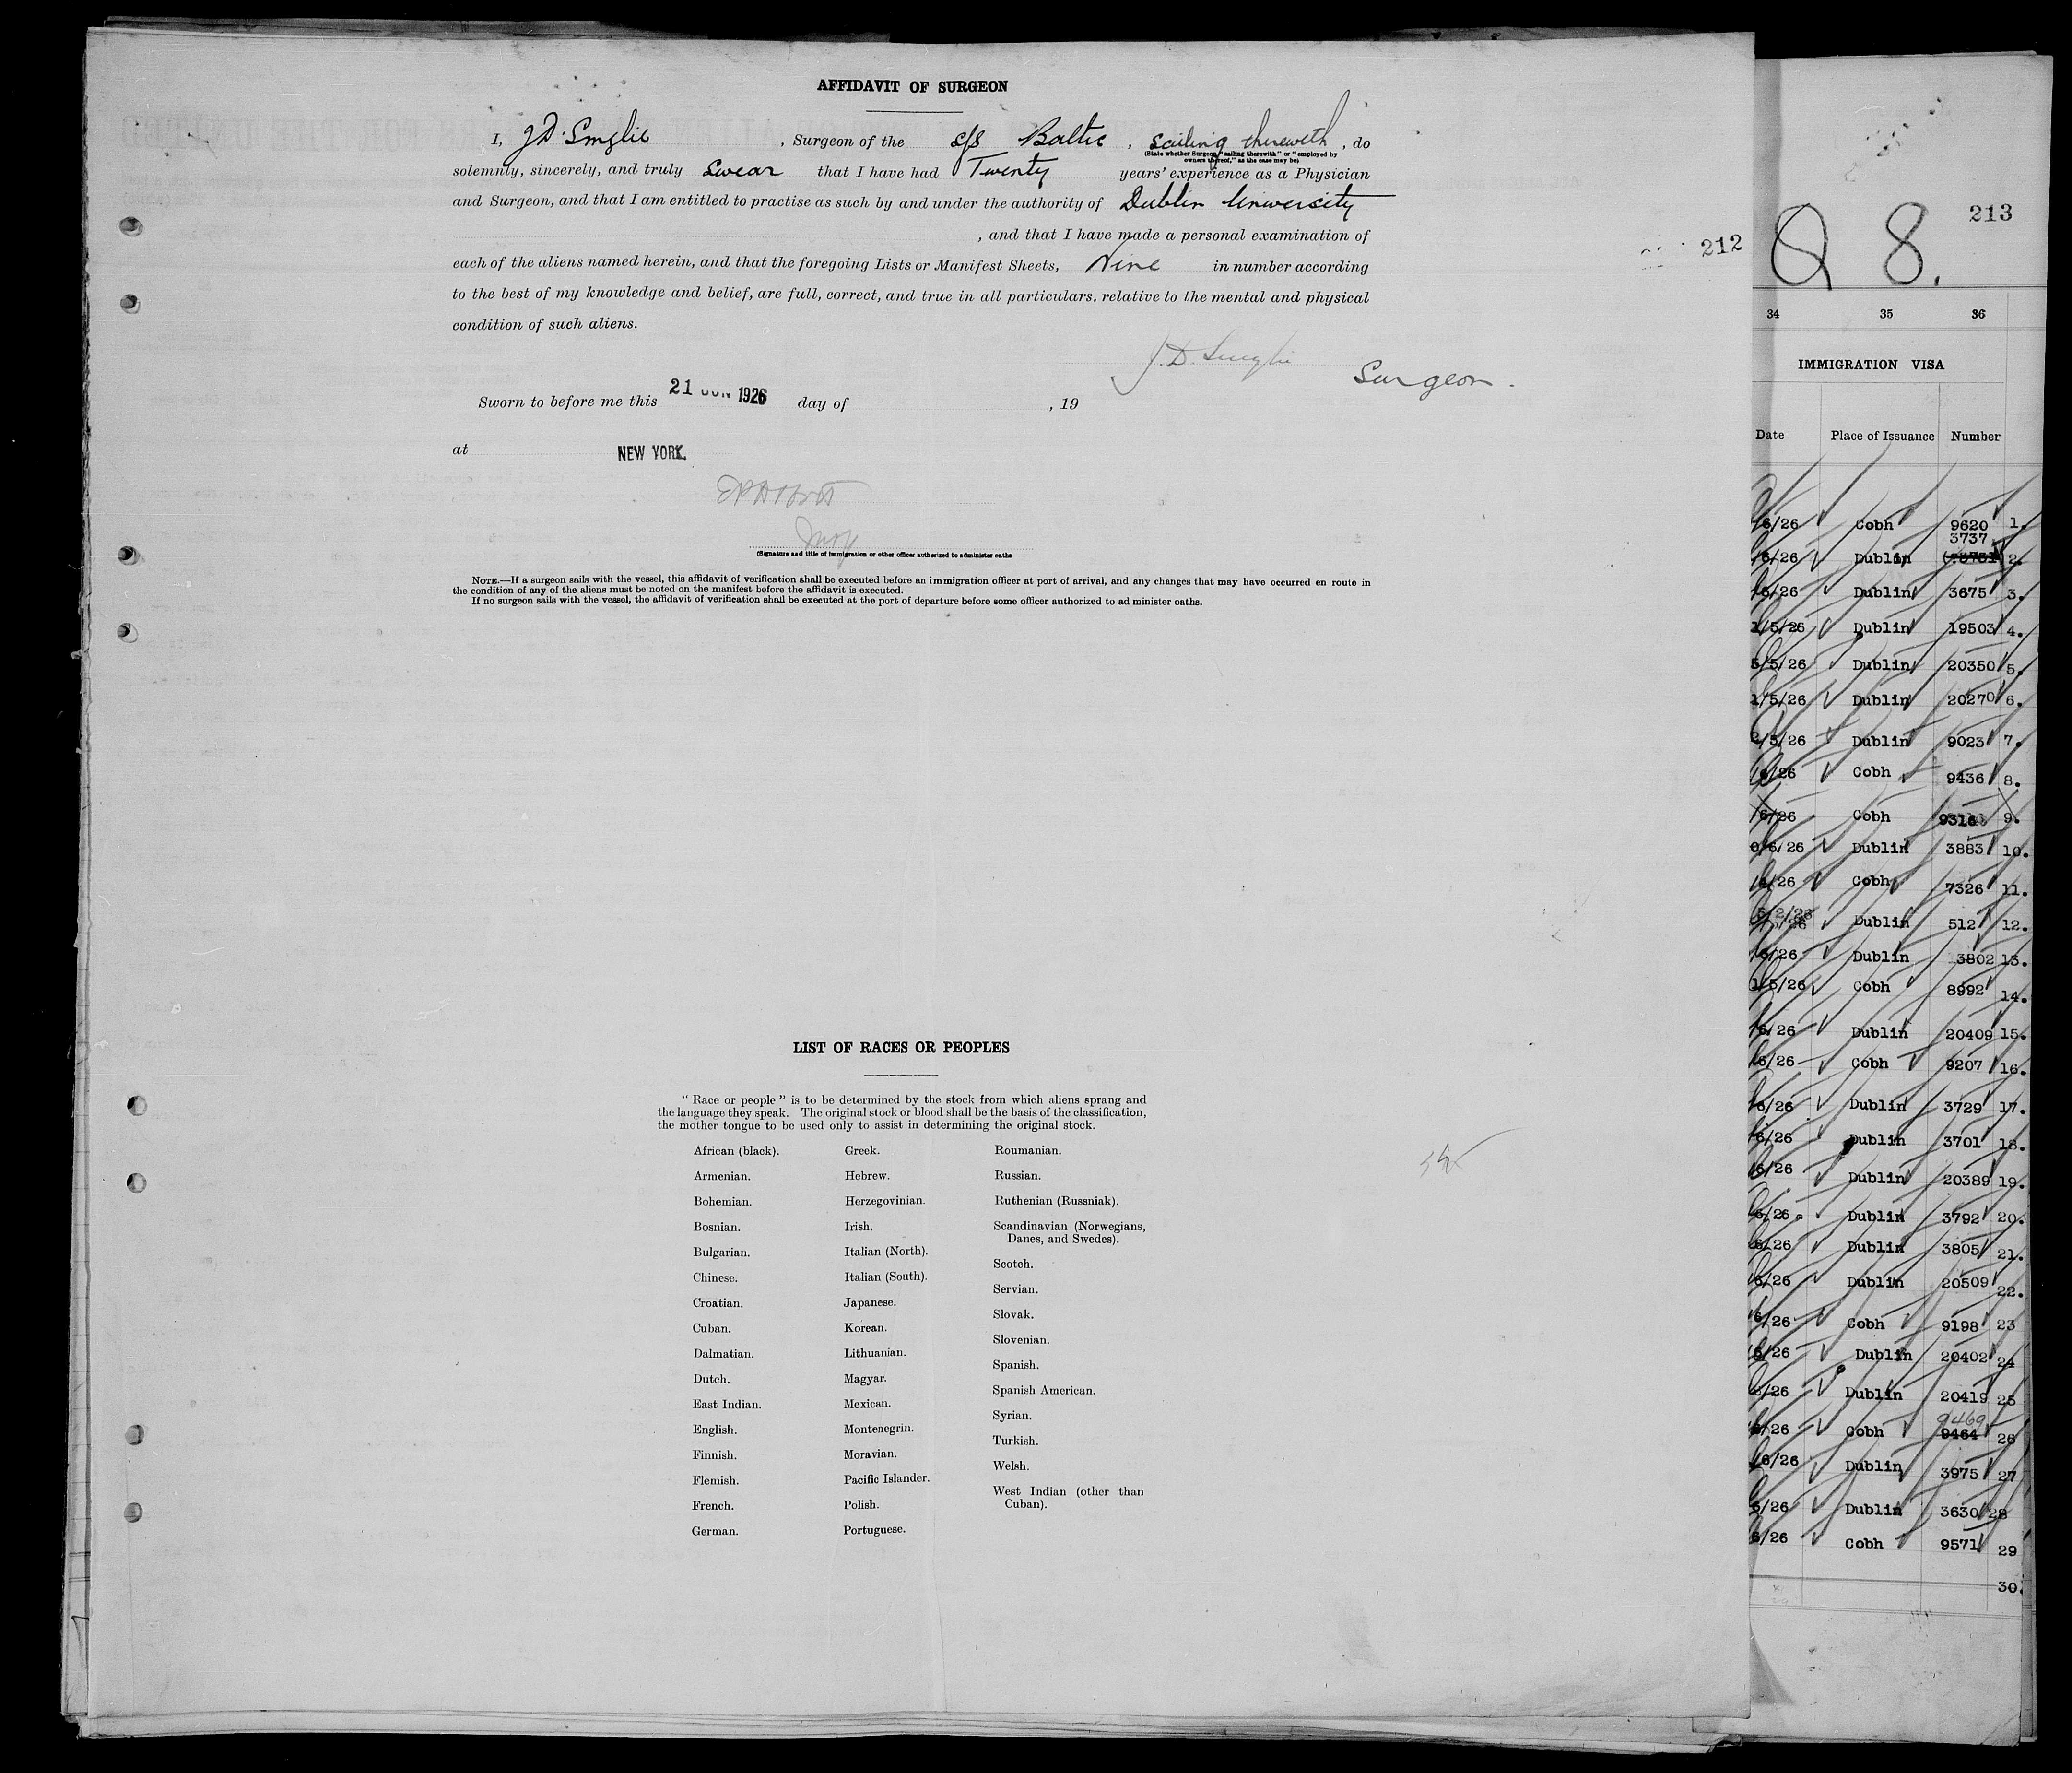 AFFIDAVIT OF SURGEON
I, J D Smylie, Surgeon of the s/s Baltic, sailing therewith, do
(State whether Surgeon "sailing therewith" or "employed by
owners thereof," as the case may be)
solemnly, sincerely, and truly Swear that I have had Twenty years' experience as a Physician
and Surgeon, and that I am entitled to practise as such by and under the authority of Dublin University
, and that I have made a personal examination of
each of the aliens named herein, and that the foregoing Lists or Manifest Sheets, Nine in number according
to the best of my knowledge and belief, are full, correct, and true in all particulars. relative to the mental and physical
condition of such aliens.
J. D. Smylie
Surgeon.
Sworn to before me this 21 JUN 1926 day of , 19
at NEW YORK.
(Signature and title of immigration or other officer authorized to administer oaths
NOTE.—If a surgeon sails with the vessel, this affidavit of verification shall be executed before an immigration officer at port of arrival, and any changes that may have occurred en route in
the condition of any of the aliens must be noted on the manifest before the affidavit is executed.
If no surgeon sails with the vessel, the affidavit of verification shall be executed at the port of departure before some officer authorized to ad minister oaths.
212
LIST OF RACES OR PEOPLES
"Race or people" is to be determined by the stock from which aliens sprang and
the language they speak. The original stock or blood shall be the basis of the classification,
the mother tongue to be used only to assist in determining the original stock.
African (black).
Armenian.
Bohemian.
Bosnian.
Bulgarian.
Chinese.
Croatian.
Cuban.
Dalmatian.
Dutch.
East Indian.
English.
Finnish.
Flemish.
French.
German.
Greek.
Hebrew.
Herzegovinian.
Irish.
Italian (North).
Italian (South).
Japanese.
Korean.
Lithuanian.
Magyar.
Mexican.
Montenegrin.
Moravian.
Pacific Islander.
Polish.
Portuguese.
Roumanian.
Russian.
Ruthenian (Russniak).
Scandinavian (Norwegians,
Danes, and Swedes).
Scotch.
Servian.
Slovak.
Slovenian.
Spanish.
Spanish American.
Syrian.
Turkish.
Welsh.
West Indian (other than
Cuban).
213
8.
34 35 36
IMMIGRATION VISA
Date Place of Issuance Number
6/26 Cobh 9620 1.
3737
6/26 Dublin 2.
6/26 Dublin 3675 3.
1/5/26 Dublin 19503 4.
5/5/26 Dublin 20350 5.
1/5/26 Dublin 20270 6.
2/5/26 Dublin 9023 7.
6/26 Cobh 9436 8.
/6/26 Cobh 9316 9.
0/6/26 Dublin 3883 10.
/26 Cobh 7326 11.
Dublin 512 12.
6/26 Dublin 3802 13.
1/5/26 Cobh 8992 14.
6/26 Dublin 20409 15.
6/26 Cobh 9207 16.
6/26 Dublin 3729 17.
6/26 Dublin 3701 18.
6/26 Dublin 20389 19.
6/26 Dublin 3792 20.
6/26 Dublin 3805 21.
6/26 Dublin 20509 22.
6/26 Cobh 9198 23
6/26 Dublin 20402 24
6/26 Dublin 20419 25
9469
6/26 Cobh 9464 26
6/26 Dublin 3975 27
6/26 Dublin 3630 28
6/26 Cobh 9571 29
30.